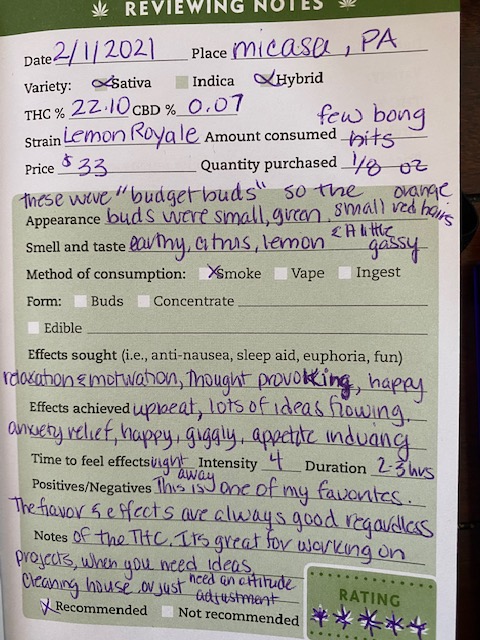 REVIEWING NOTES
Date 2/11/2021 Place micasa, PA
Variety: Sativa Indica Hybrid
THC % 22.10 CBD % 0.07
few bong
Strain Lemon Royale Amount consumed hits
Price $33 Quantity purchased 1/8 oz
these were "budget buds" so the orange
Appearance buds were small, green, small red hairs
Smell and taste earthy, citrus, lemon & a little gassy
Method of consumption: Smoke Vape Ingest
Form: Buds Concentrate
Edible
Effects sought (i.e., anti-nausea, sleep aid, euphoria, fun)
relaxation & motivation, thought provoking, happy
Effects achieved upbeat, lots of ideas flowing,
anxiety relief, happy, giggly, appetite inducing
Time to feel effects right away Intensity 4 Duration 2-3 hrs
Positives/Negatives This is one of my favorites.
The flavor & effects are always good regardless
Notes of the THC. Its great for working on
projects, when you need ideas,
cleaning house or just need an attitude
adjustment
RATING
Recommended Not recommended